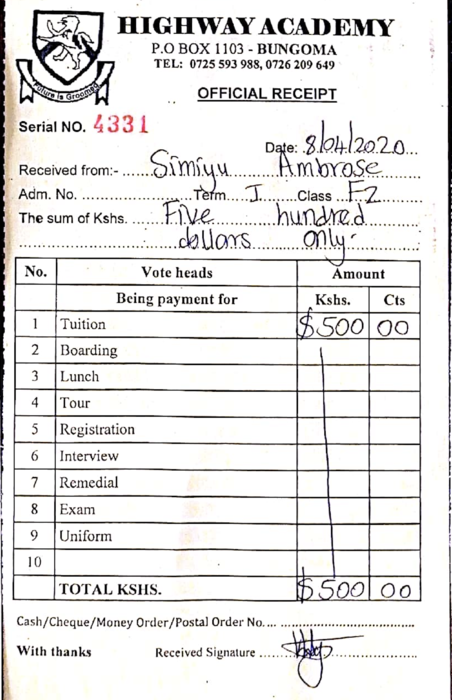 HIGHWAY ACADEMY
P.O BOX 1103 - BUNGOMA
TEL: 0725 593 988, 0726 209 649
Future is Groomed
OFFICIAL RECEIPT
Serial NO. 4331
Date: 8/04/2020
Received from:- Simiyu Ambrose
Adm. No. .......... Term I Class F2
The sum of Kshs. Five hundred
dollars only
No. Vote heads Amount
Being payment for Kshs. Cts
1 Tuition $500 00
2 Boarding
3 Lunch
4 Tour
5 Registration
6 Interview
7 Remedial
8 Exam
9 Uniform
10
TOTAL KSHS. $500 00
Cash/Cheque/Money Order/Postal Order No. ..........
With thanks Received Signature ..........